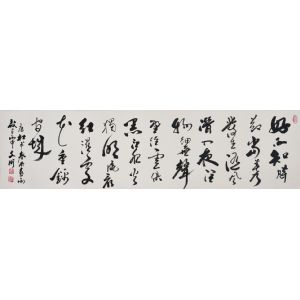 好雨知時
節當春乃
發生隨風
潛入夜潤
物細無聲
野徑雲俱
黑江船火
獨明曉看
紅濕處
花重錦
官城
唐杜甫春夜喜雨